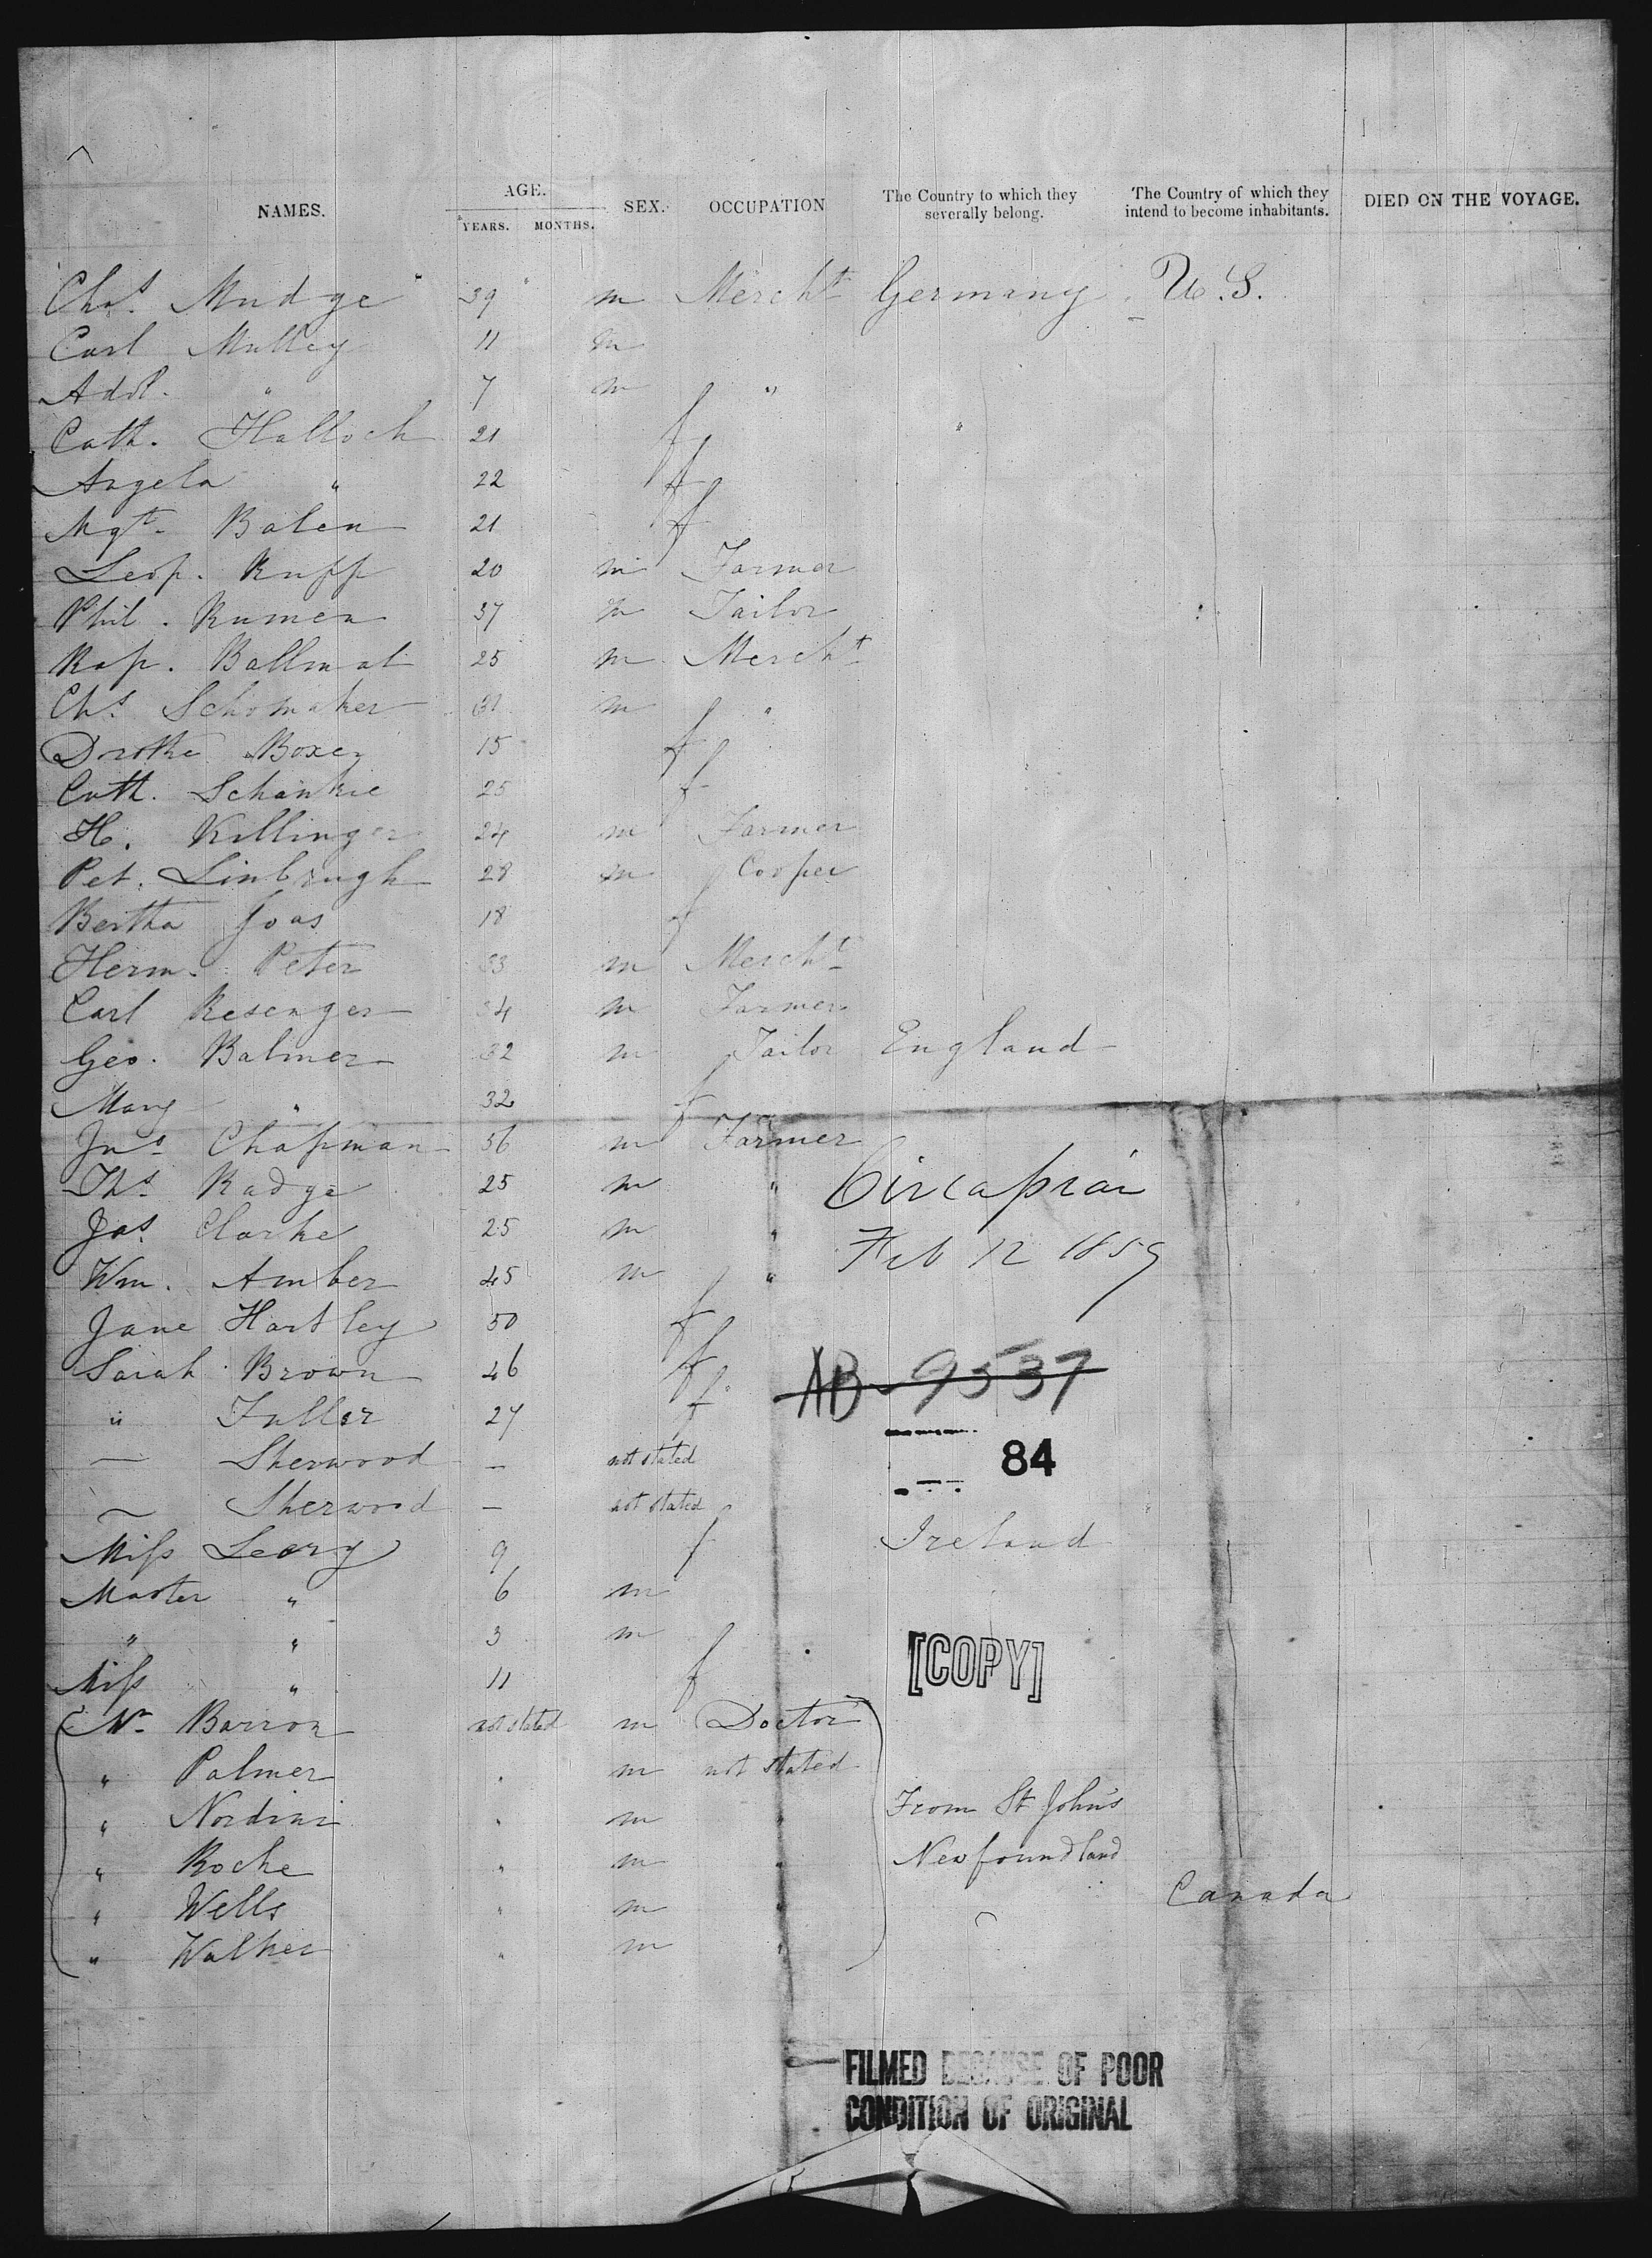 NAMES. AGE. YEARS. MONTHS. SEX. OCCUPATION The Country to which they severally belong. The Country of which they intend to become inhabitants. DIED ON THE VOYAGE.
Chas. Mudge 39 m Mercht Germany U.S.
Carl Mulley 11 m
Adol. " 7 m "
Cath. Halloch 21 f
Angela " 22 f
Mgt. Balen 21 f
Leop. Rupp 20 m Farmer
Phil. Rumen 37 m Tailor
Rap. Ballmat 25 m Mercht
Chs. Schomaker 31 m "
Drothe Boxey 15 f
Cath. Schankie 25 f
H. Killinger 24 m Farmer
Pet. Linbrugh 28 m Cooper
Bertha Joas 18 f
Herm. Peter 33 m Mercht
Carl Resenger 34 m Farmer
Geo. Balmer 32 m Tailor England
Mary " 32 f
Jno Chapman 56 m Farmer
Ths. Radge 25 m "
Circassian
Jas. Clarke 25 m "
Feb 12 1859
Wm. Amber 45 m "
Jane Hartley 50 f
Sarah Brown 46 f
AB-9537
" Fuller 27 f
— Sherwood — not stated
84
— Sherwood — not stated
Miss Leary 9 f Ireland
Master " 6 m
" " 3 m
[COPY]
Miss " 11 f
Mr. Barron not stated m Doctor
" Palmer " m not stated
" Nordini " m "
From St John's
" Roche " m "
Newfoundland
" Wells " m "
Canada
" Walker " m "
FILMED BECAUSE OF POOR
CONDITION OF ORIGINAL